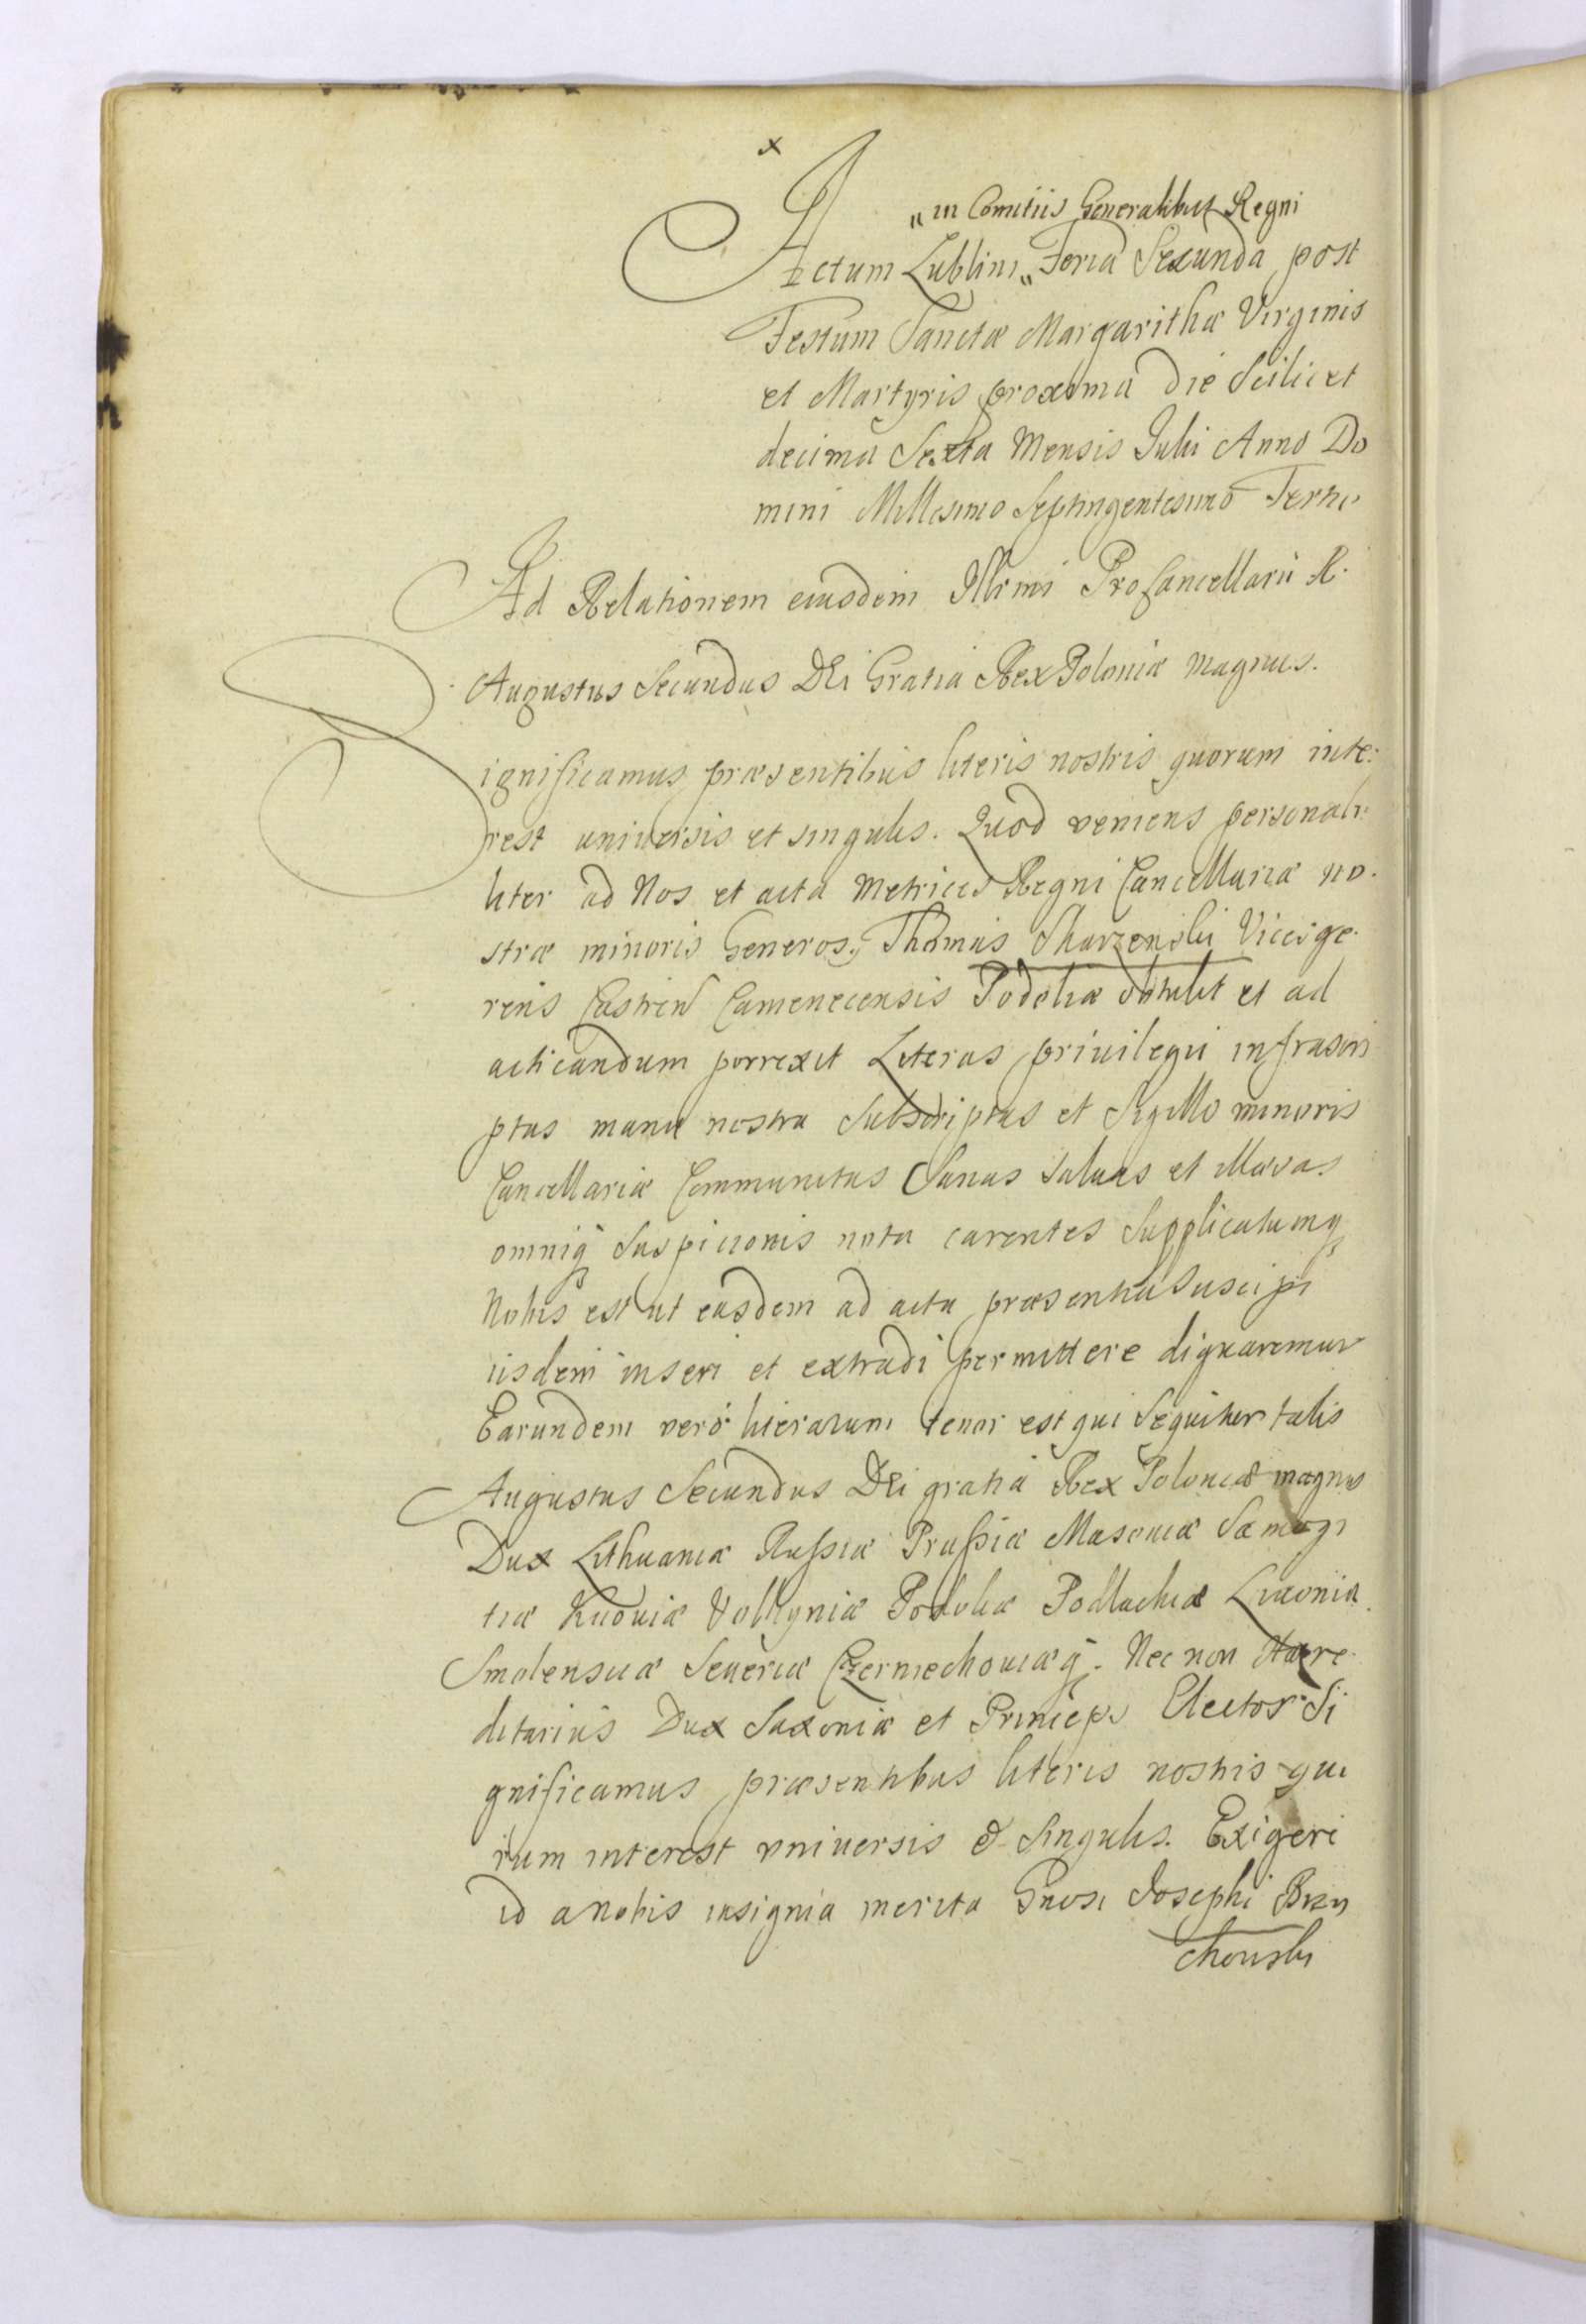 x
„in Comitiis Generalibus Regni
Actum Lublini „ Feria Secunda post
Festum Sanctæ Margarithæ Virginis
et Martyris proxima die Scilicet
decima Sexta Mensis Julii Anno Do
mini Millesimo Septingentesimo Tertio
Ad Relationem eiusdem Illrmi ProCancellarii R.
Augustus Secundus DEi Gratia Rex Poloniæ magnus.
Significamus præsentibus literis nostris quorum inte:
rest universis et singulis. Quod veniens personali:
liter ad Nos et acta Metrices Regni Cancellariæ no.
stræ minoris Generos. Thomas Skarzenski Vicesge.
rens Castren Camenecensis Podoliæ obtulit et ad
acticandum porrexit Literas privilegii infrascri
ptas manu nostra Subscriptas et Sigillo minoris
Cancellariæ Communitas Sanas Salvas et illæsas
omniq Suspicionis nota carentes Supplicatumq
Nobis est ut easdem ad acta præsentia Suscipi
iisdem inseri et extradi permittere dignaremur
Earundem verò literarum tenor est qui Sequitur talis
Augustus Secundus DEi gratia Rex Poloniæ magnus
Dux Lithuaniæ Russiæ Prussiæ Masoviæ Samogi
tiæ Kijoviæ Volhyniæ Podoliæ Podlachiæ Livoniæ
Smolensciæ Severiæ Czerniechoviæq. Nec non Hære
ditarius Dux Saxoniæ et Princeps Elector Si
gnificamus præsentibus literis nostris quo
rum interest vniversis & Singulis. Exigere
id a Nobis insignia merita Gnosi Josephi Brzu
chouski